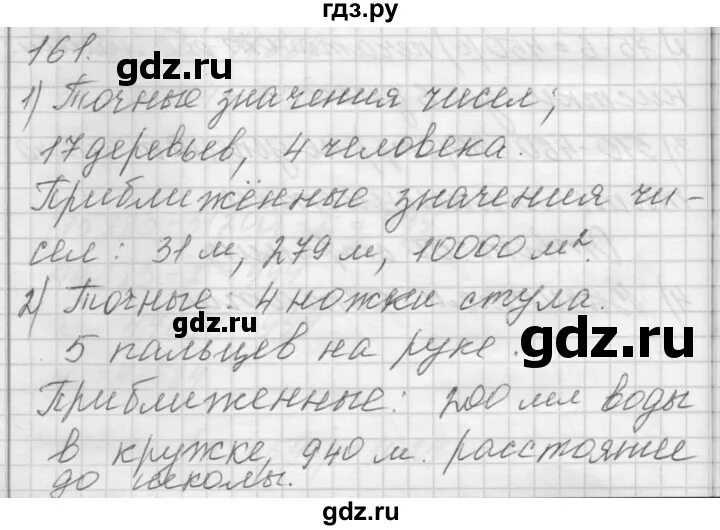 гдз.ру
161.
gdz.ru
1) Точные значения чисел;
gdz.ru
17 деревьев, 4 человека.
Приближённые значения чи-
gdz.ru
сел: 31 м, 279 м, 10000 м².
2) Точные: 4 ножки стула.
gdz.ru
5 пальцев на руке.
gdz.ru
Приближенные: 200 мл воды
в кружке, 940 м. расстояние
gdz.ru
до школы.
gdz.ru
gdz.ru